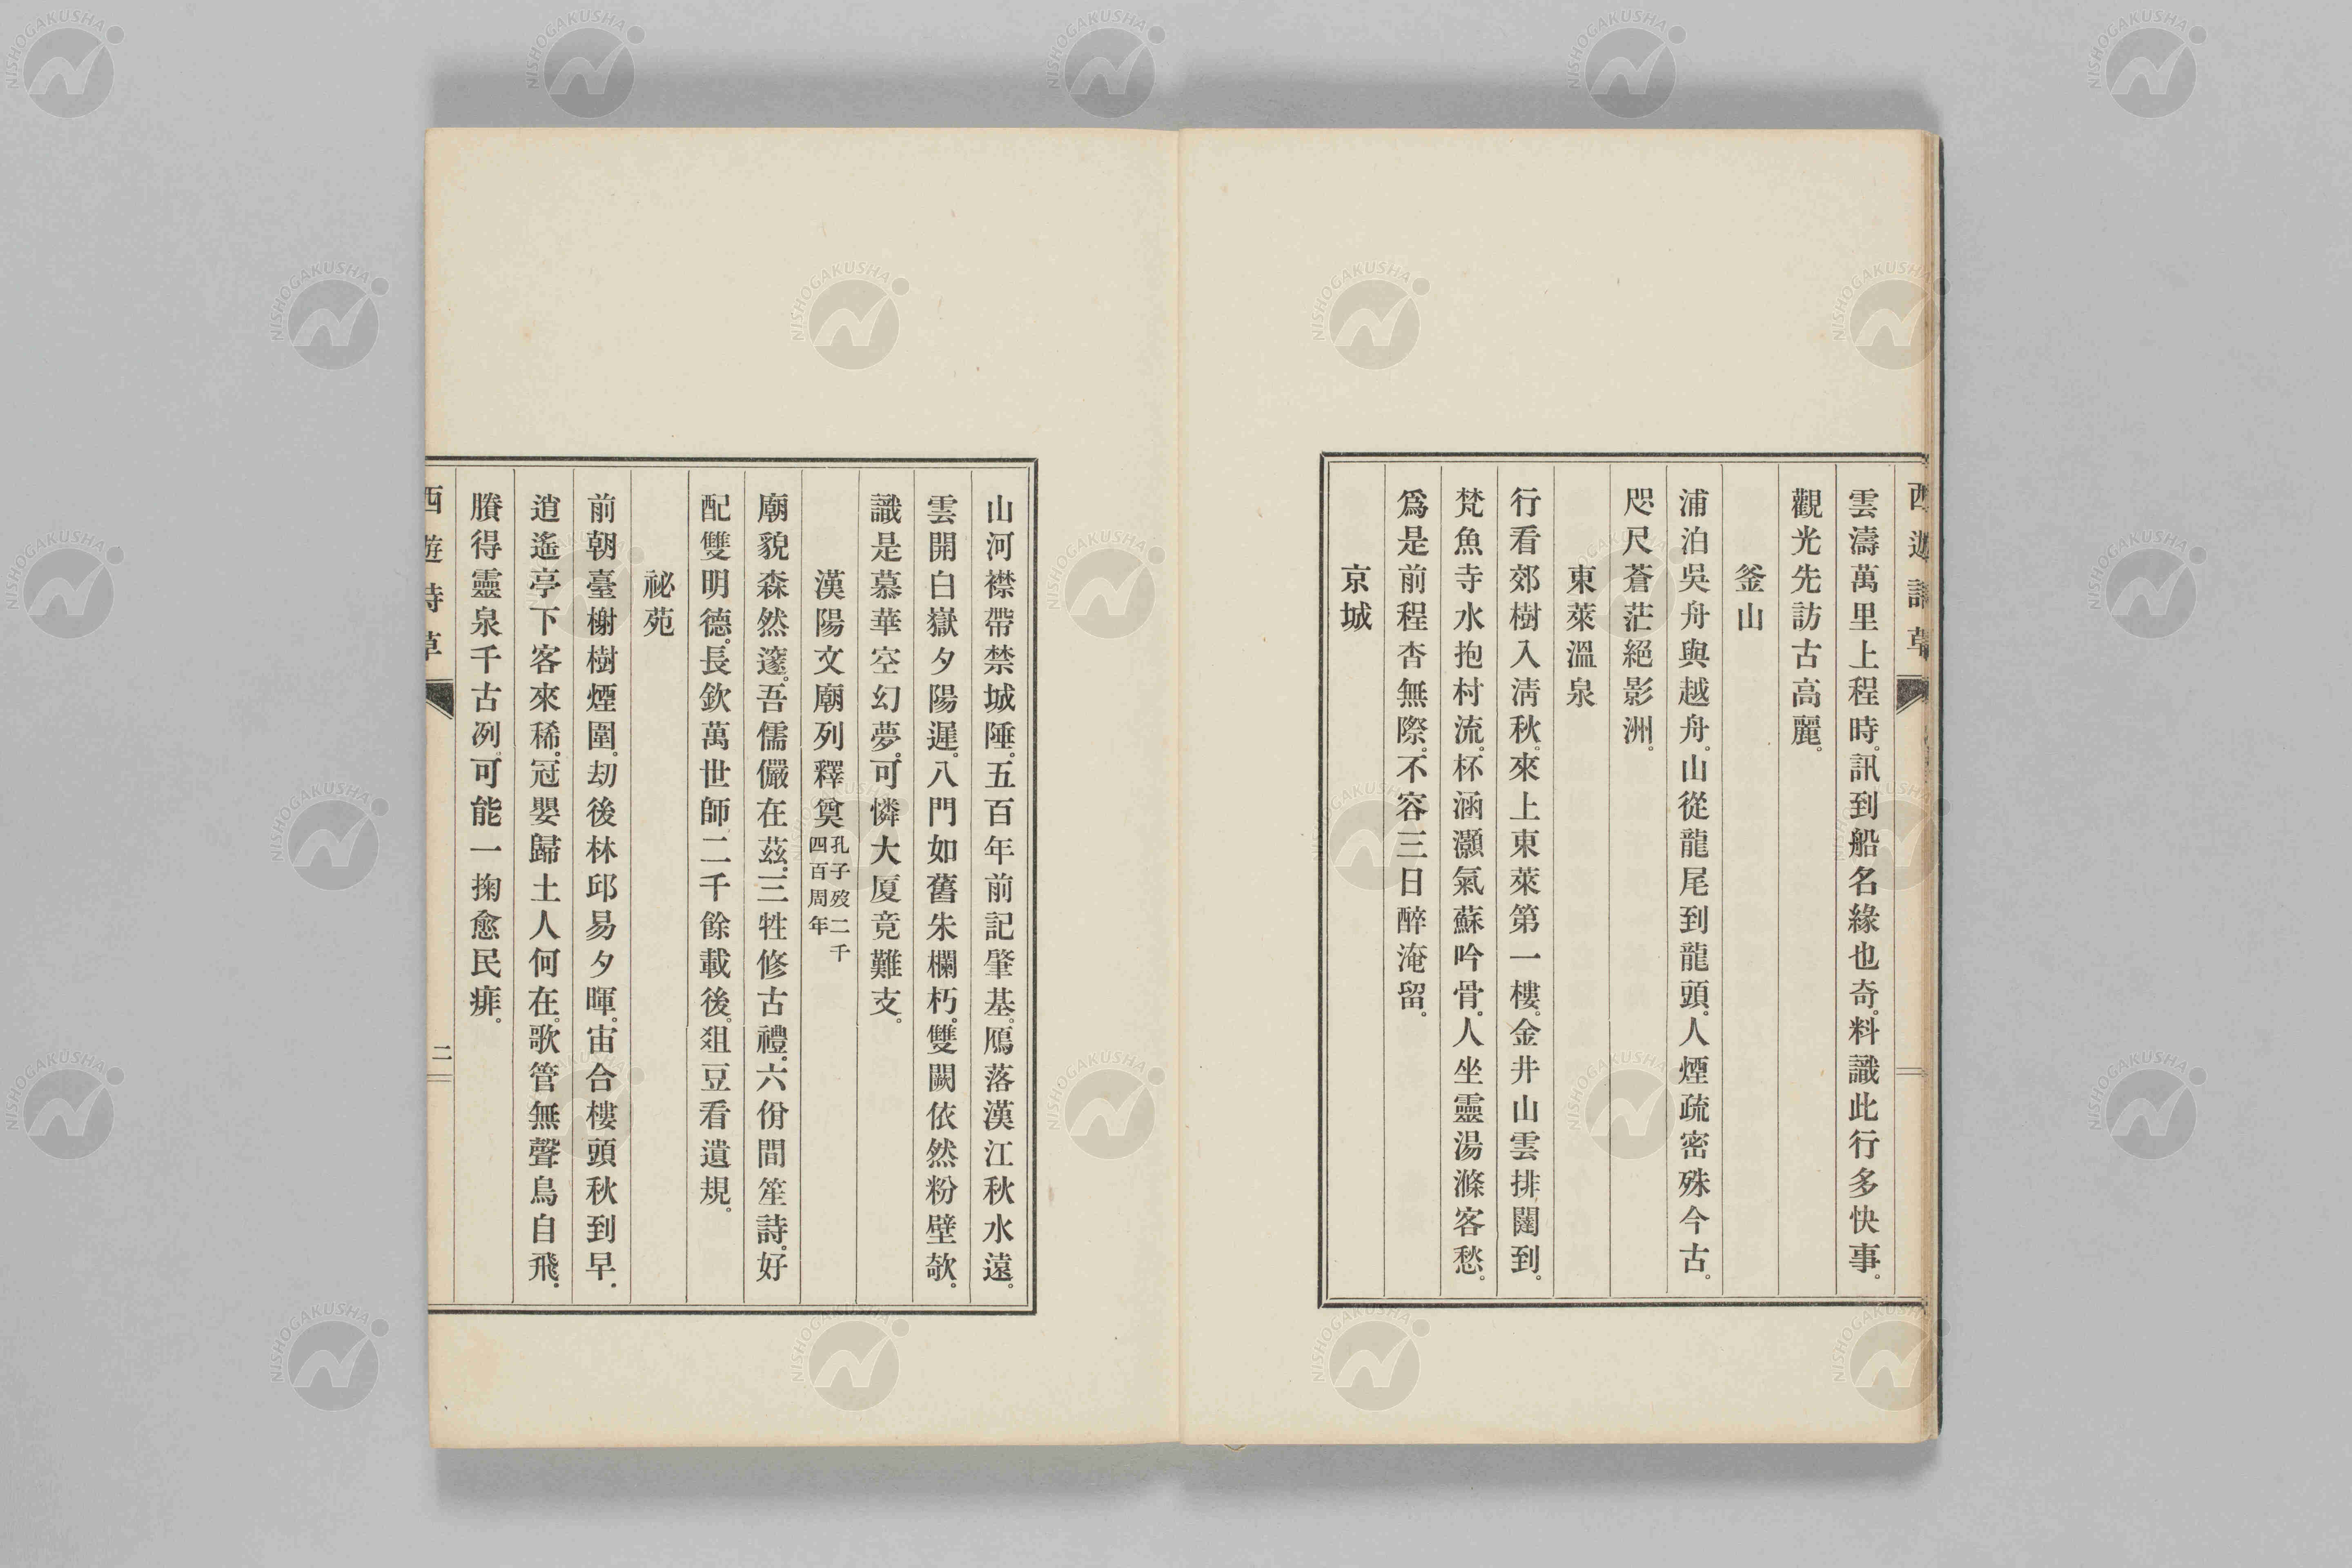 西遊詩草
雲濤萬里上程時。訊到船名緣也奇。料識此行多快事。
觀光先訪古高麗。
釜山
浦泊吳舟與越舟。山從龍尾到龍頭。人煙疏密殊今古。
咫尺蒼茫絕影洲。
東萊溫泉
行看郊樹入淸秋。來上東萊第一樓。金井山雲排闥到。
梵魚寺水抱村流。杯涵灝氣蘇吟骨。人坐靈湯滌客愁。
爲是前程杳無際。不容三日醉淹留。
京城
山河襟帶禁城陲。五百年前記肇基。鴈落漢江秋水遠。
雲開白嶽夕陽遲。八門如舊朱欄朽。雙闕依然粉壁欹。
識是慕華空幻夢。可憐大厦竟難支。
漢陽文廟列釋奠孔子歿二千
四百周年
廟貌森然邃。吾儒儼在茲。三牲修古禮。六佾間笙詩。好
配雙明德。長欽萬世師。二千餘載後。俎豆看遺規。
祕苑
前朝臺榭樹煙圍。劫後林邱易夕暉。宙合樓頭秋到早。
逍遙亭下客來稀。冠嬰歸土人何在。歌管無聲鳥自飛。
賸得靈泉千古冽。可能一掬愈民痱。
西遊詩草
二
NISHOGAKUSHA